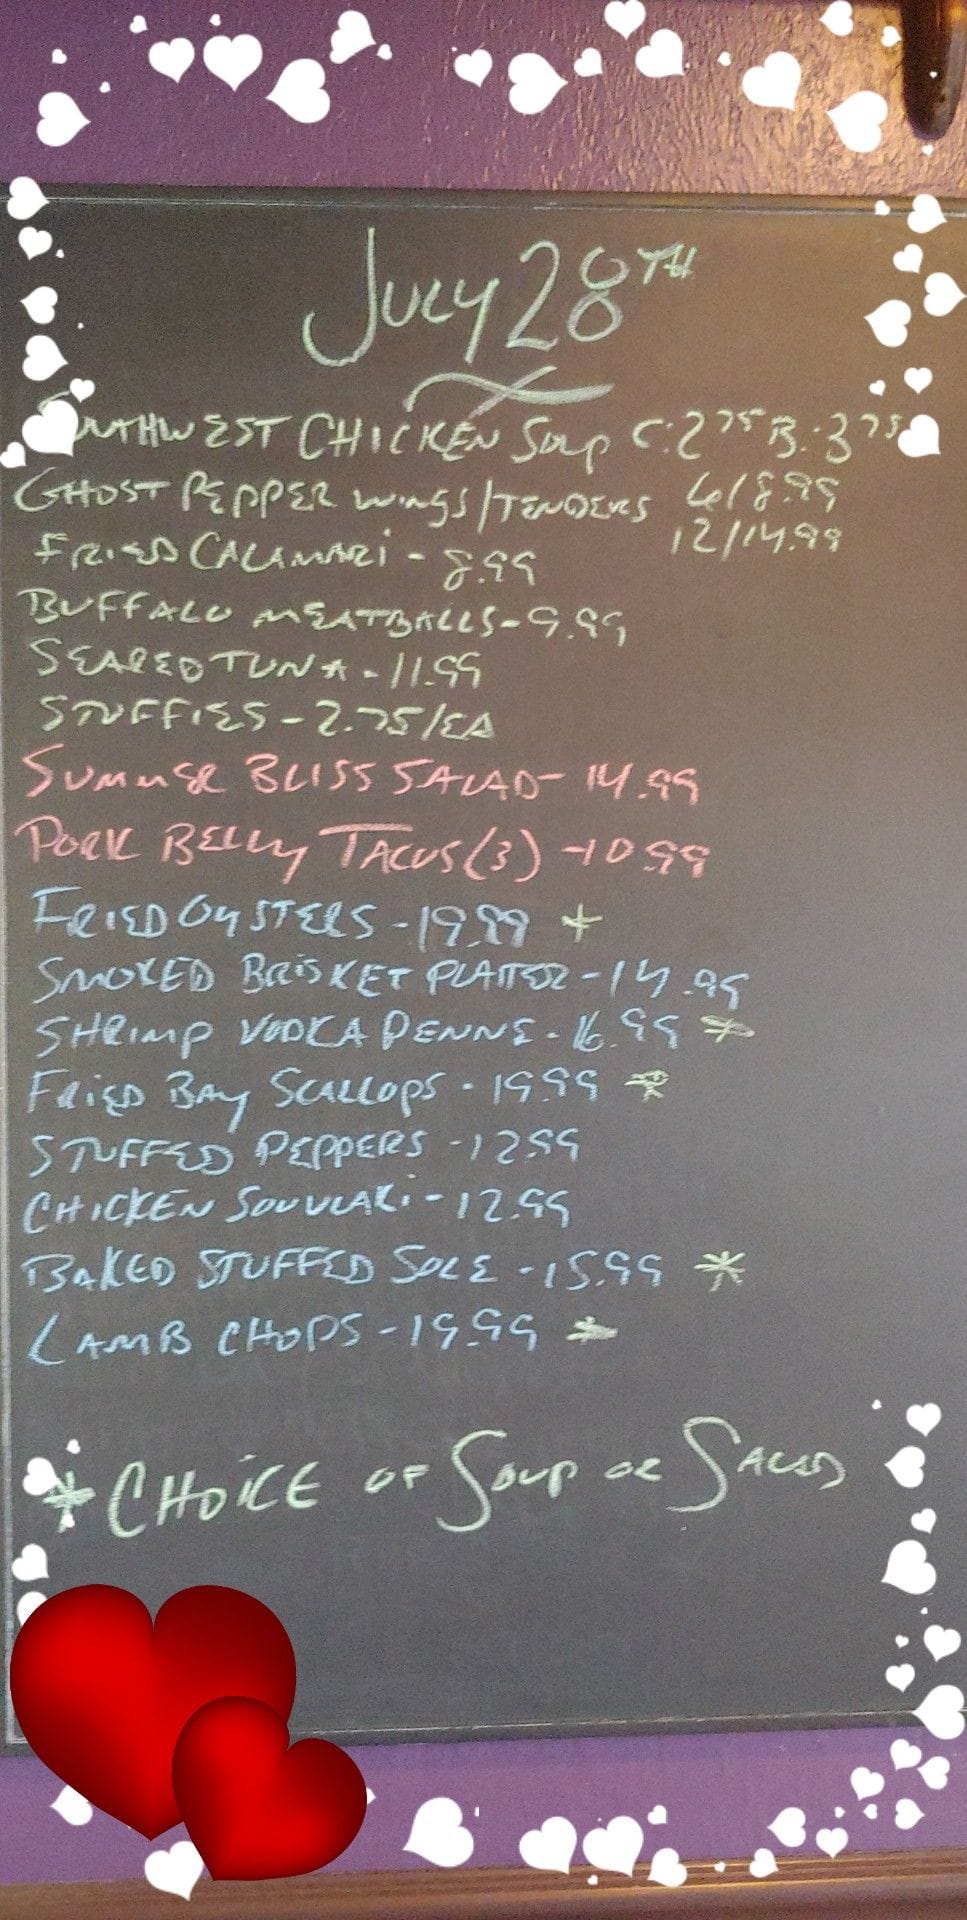 JULY 28TH
SOUTHWEST CHICKEN SOUP C:2 75 B:3 75
GHOST PEPPER WINGS/TENDERS 6/8.99
12/14.99
FRIED CALAMARI - 8.99
BUFFALO MEATBALLS - 9.99
SEARED TUNA - 11.99
STUFFIES - 2.75/EA
SUMMER BLISS SALAD - 14.99
PORK BELLY TACOS (3) - 10.99
FRIED OYSTERS - 19.99 *
SMOKED BRISKET PLATTER - 14.99
SHRIMP VODKA PENNE - 16.99 *
FRIED BAY SCALLOPS - 19.99 *
STUFFED PEPPERS - 12.99
CHICKEN SOUVLAKI - 12.99
BAKED STUFFED SOLE - 15.99 *
LAMB CHOPS - 19.99 *
* CHOICE OF SOUP OR SALAD